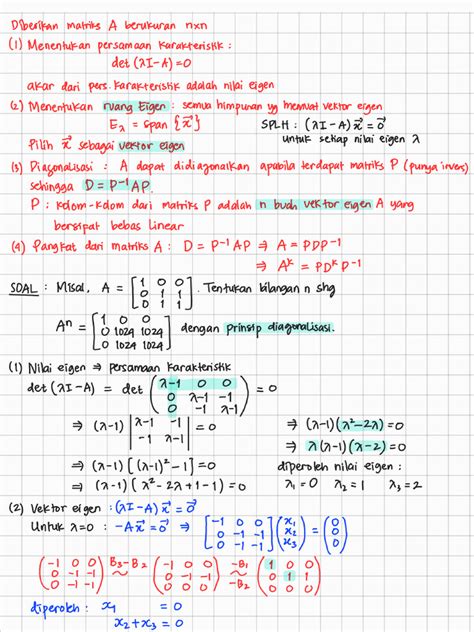 Diberikan matriks A berukuran n×n
(1) Menentukan persamaan karakteristik :
det (λI-A) = 0
akar dari pers. karakteristik adalah nilai eigen
(2) Menentukan ruang Eigen : semua himpunan yg memuat vektor eigen
E_λ = span {x⃗} SPLH : (λI-A) x⃗ = 0⃗
Pilih x⃗ sebagai vektor eigen untuk setiap nilai eigen λ
(3) Diagonalisasi : A dapat didiagonalkan apabila terdapat matriks P (punya invers)
sehingga D = P⁻¹AP.
P : kolom-kolom dari matriks P adalah n buah vektor eigen A yang
bersifat bebas linear
(4) Pangkat dari matriks A : D = P⁻¹AP ⇒ A = PDP⁻¹
⇒ Aᵏ = PDᵏP⁻¹
SOAL : Misal, A = [1 0 0; 0 1 1; 0 1 1]. Tentukan bilangan n shg
Aⁿ = [1 0 0; 0 1024 1024; 0 1024 1024] dengan prinsip diagonalisasi.
(1) Nilai eigen ⇒ persamaan karakteristik
det (λI-A) = det (λ-1 0 0; 0 λ-1 -1; 0 -1 λ-1) = 0
⇒ (λ-1) |λ-1 -1; -1 λ-1| = 0 ⇒ (λ-1)(λ²-2λ) = 0
⇒ λ(λ-1)(λ-2) = 0
⇒ (λ-1) [(λ-1)²-1] = 0 diperoleh nilai eigen :
⇒ (λ-1) (λ²-2λ+1-1) = 0 λ₁ = 0 λ₂ = 1 λ₃ = 2
(2) Vektor eigen : (λI-A) x⃗ = 0⃗
Untuk λ=0 : -Ax⃗ = 0⃗ ⇒ [-1 0 0; 0 -1 -1; 0 -1 -1] (x₁; x₂; x₃) = (0; 0; 0)
(-1 0 0; 0 -1 -1; 0 -1 -1) B₃-B₂ ~ (-1 0 0; 0 -1 -1; 0 0 0) -B₁ ~ -B₂ (1 0 0; 0 1 1; 0 0 0)
diperoleh : x₁ = 0
x₂+x₃ = 0